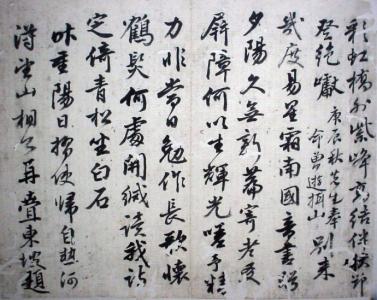 彩虹橋外紫峰高結伴
登絶巘庚辰秋先生奉命曾遊山別来
幾度易星霜南國音書
夕陽久無新篇寄老友
屏障何以生輝光嗟予精
力非常日勉作長歌懷
鶴髮何處開緘讀我詩
定倚青松坐白石
重陽日使歸自熱河
得望山相公再疊東坡題